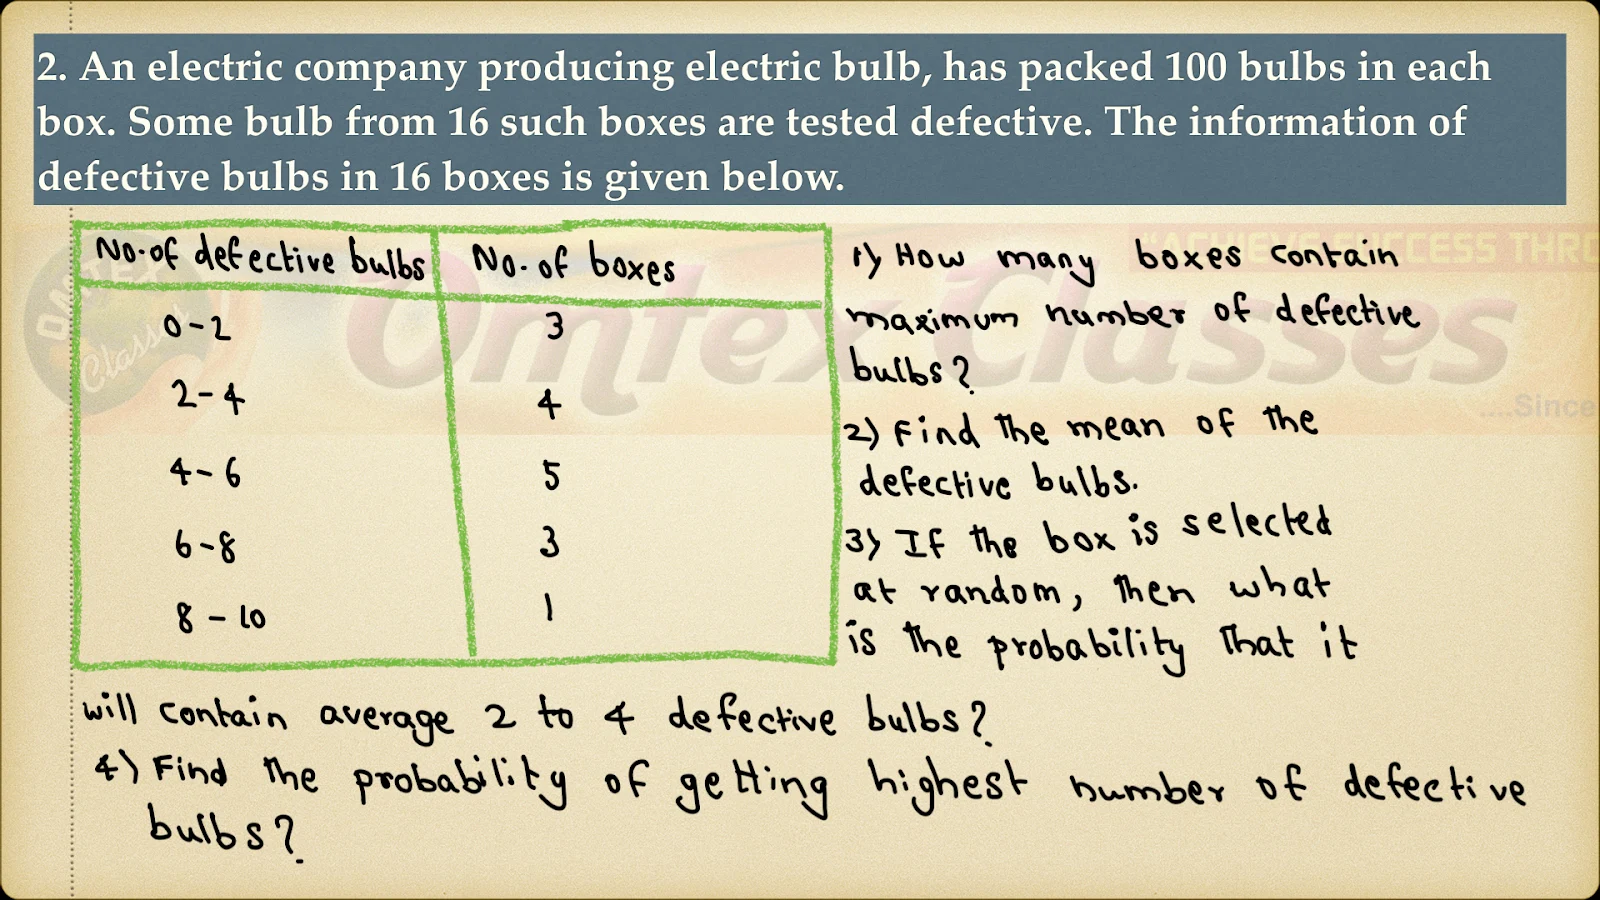 2. An electric company producing electric bulb, has packed 100 bulbs in each
box. Some bulb from 16 such boxes are tested defective. The information of
defective bulbs in 16 boxes is given below.
No. of defective bulbs No. of boxes
0-2 3
2-4 4
4-6 5
6-8 3
8-10 1
1) How many boxes contain
maximum number of defective
bulbs?
2) Find the mean of the
defective bulbs.
3) If the box is selected
at random, then what
is the probability that it
will contain average 2 to 4 defective bulbs?
4) Find the probability of getting highest number of defective
bulbs?
"ACHIEVE SUCCESS THRO
OMTEX
Classes
Omtex Classes
....Since